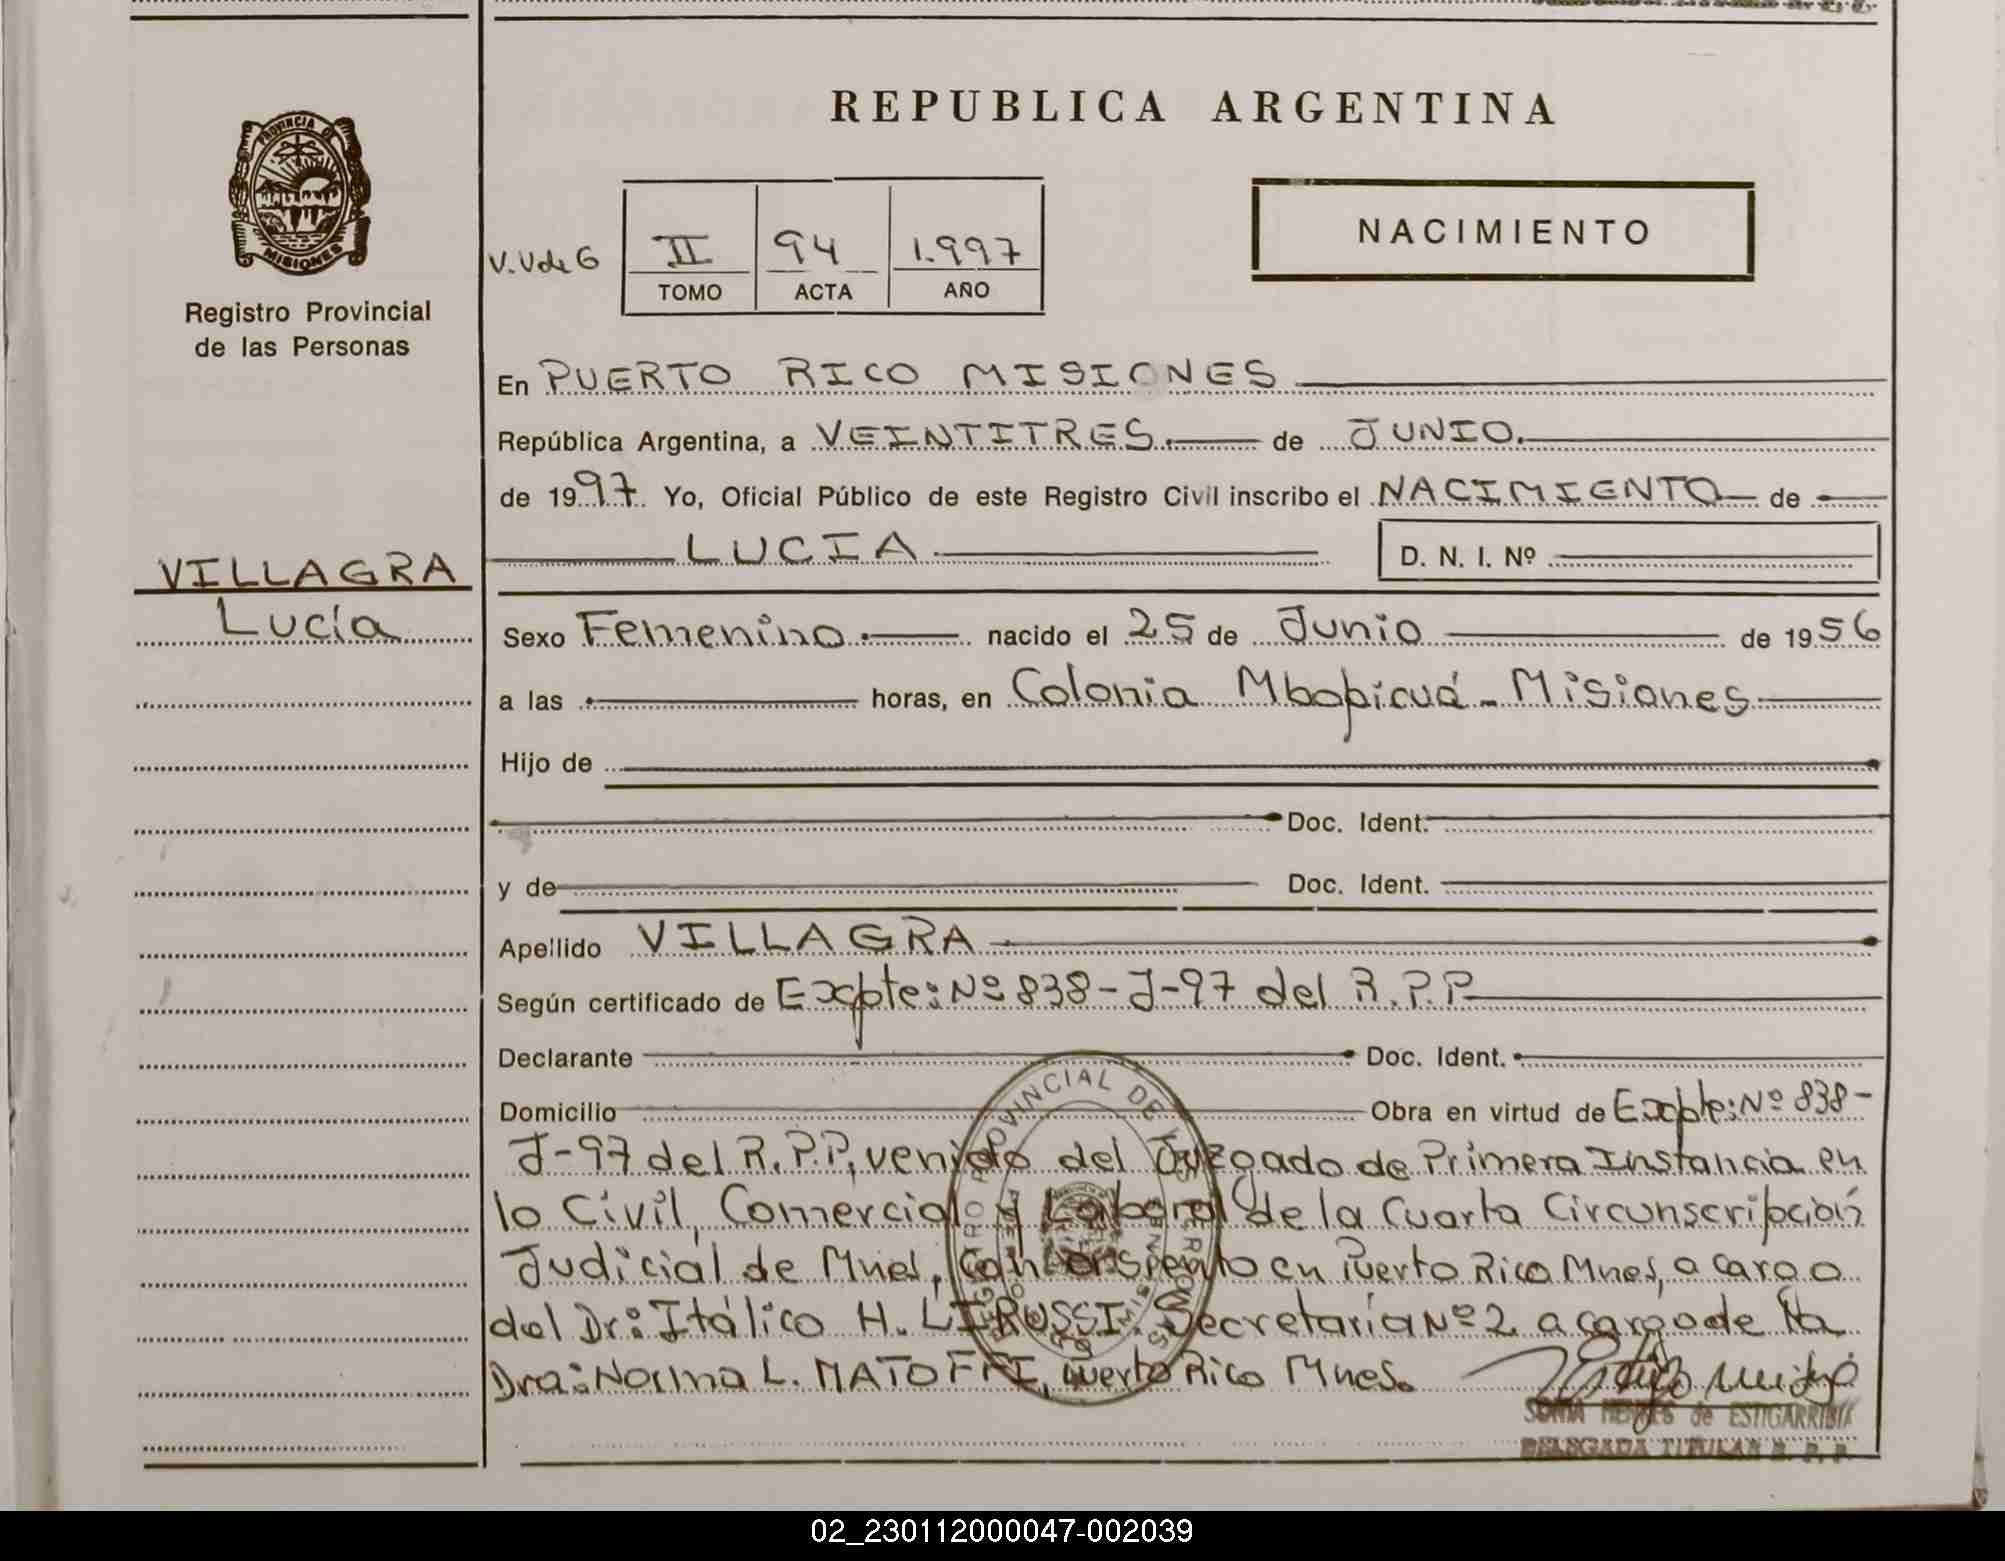 REPUBLICA ARGENTINA
PROVINCIA D
MISIONES
Registro Provincial
de las Personas
NACIMIENTO
V.V de G
II 94 1.997
TOMO ACTA AÑO
En PUERTO RICO MISIONES
República Argentina, a VEINTITRES. de JUNIO.
de 1997. Yo, Oficial Público de este Registro Civil inscribo el NACIMIENTO de
LUCIA D. N. I. Nº
VILLAGRA
Lucía
Sexo Femenino. nacido el 25 de Junio de 1956
a las horas, en Colonia Mbopicuá - Misiones
Hijo de
Doc. Ident.
y de Doc. Ident.
Apellido VILLAGRA
Según certificado de Expte: Nº 838-J-97 del R.P.P
Declarante Doc. Ident.
Domicilio Obra en virtud de Expte: Nº 838-
J-97 del R.P.P, venido del Juzgado de Primera Instancia en
lo Civil, Comercial y Laboral de la Cuarta Circunscripción
Judicial de Mnes, con asiento en Puerto Rico Mnes, a cargo
del Dr: Itálico H. LIRUSSI. Secretaría Nº 2 a cargo de la
Dra: Norma L. Puerto Rico Mnes.
de ESTIGARRIBIA
DELEGADA TITULAR R. P. P.
02_230112000047-002039